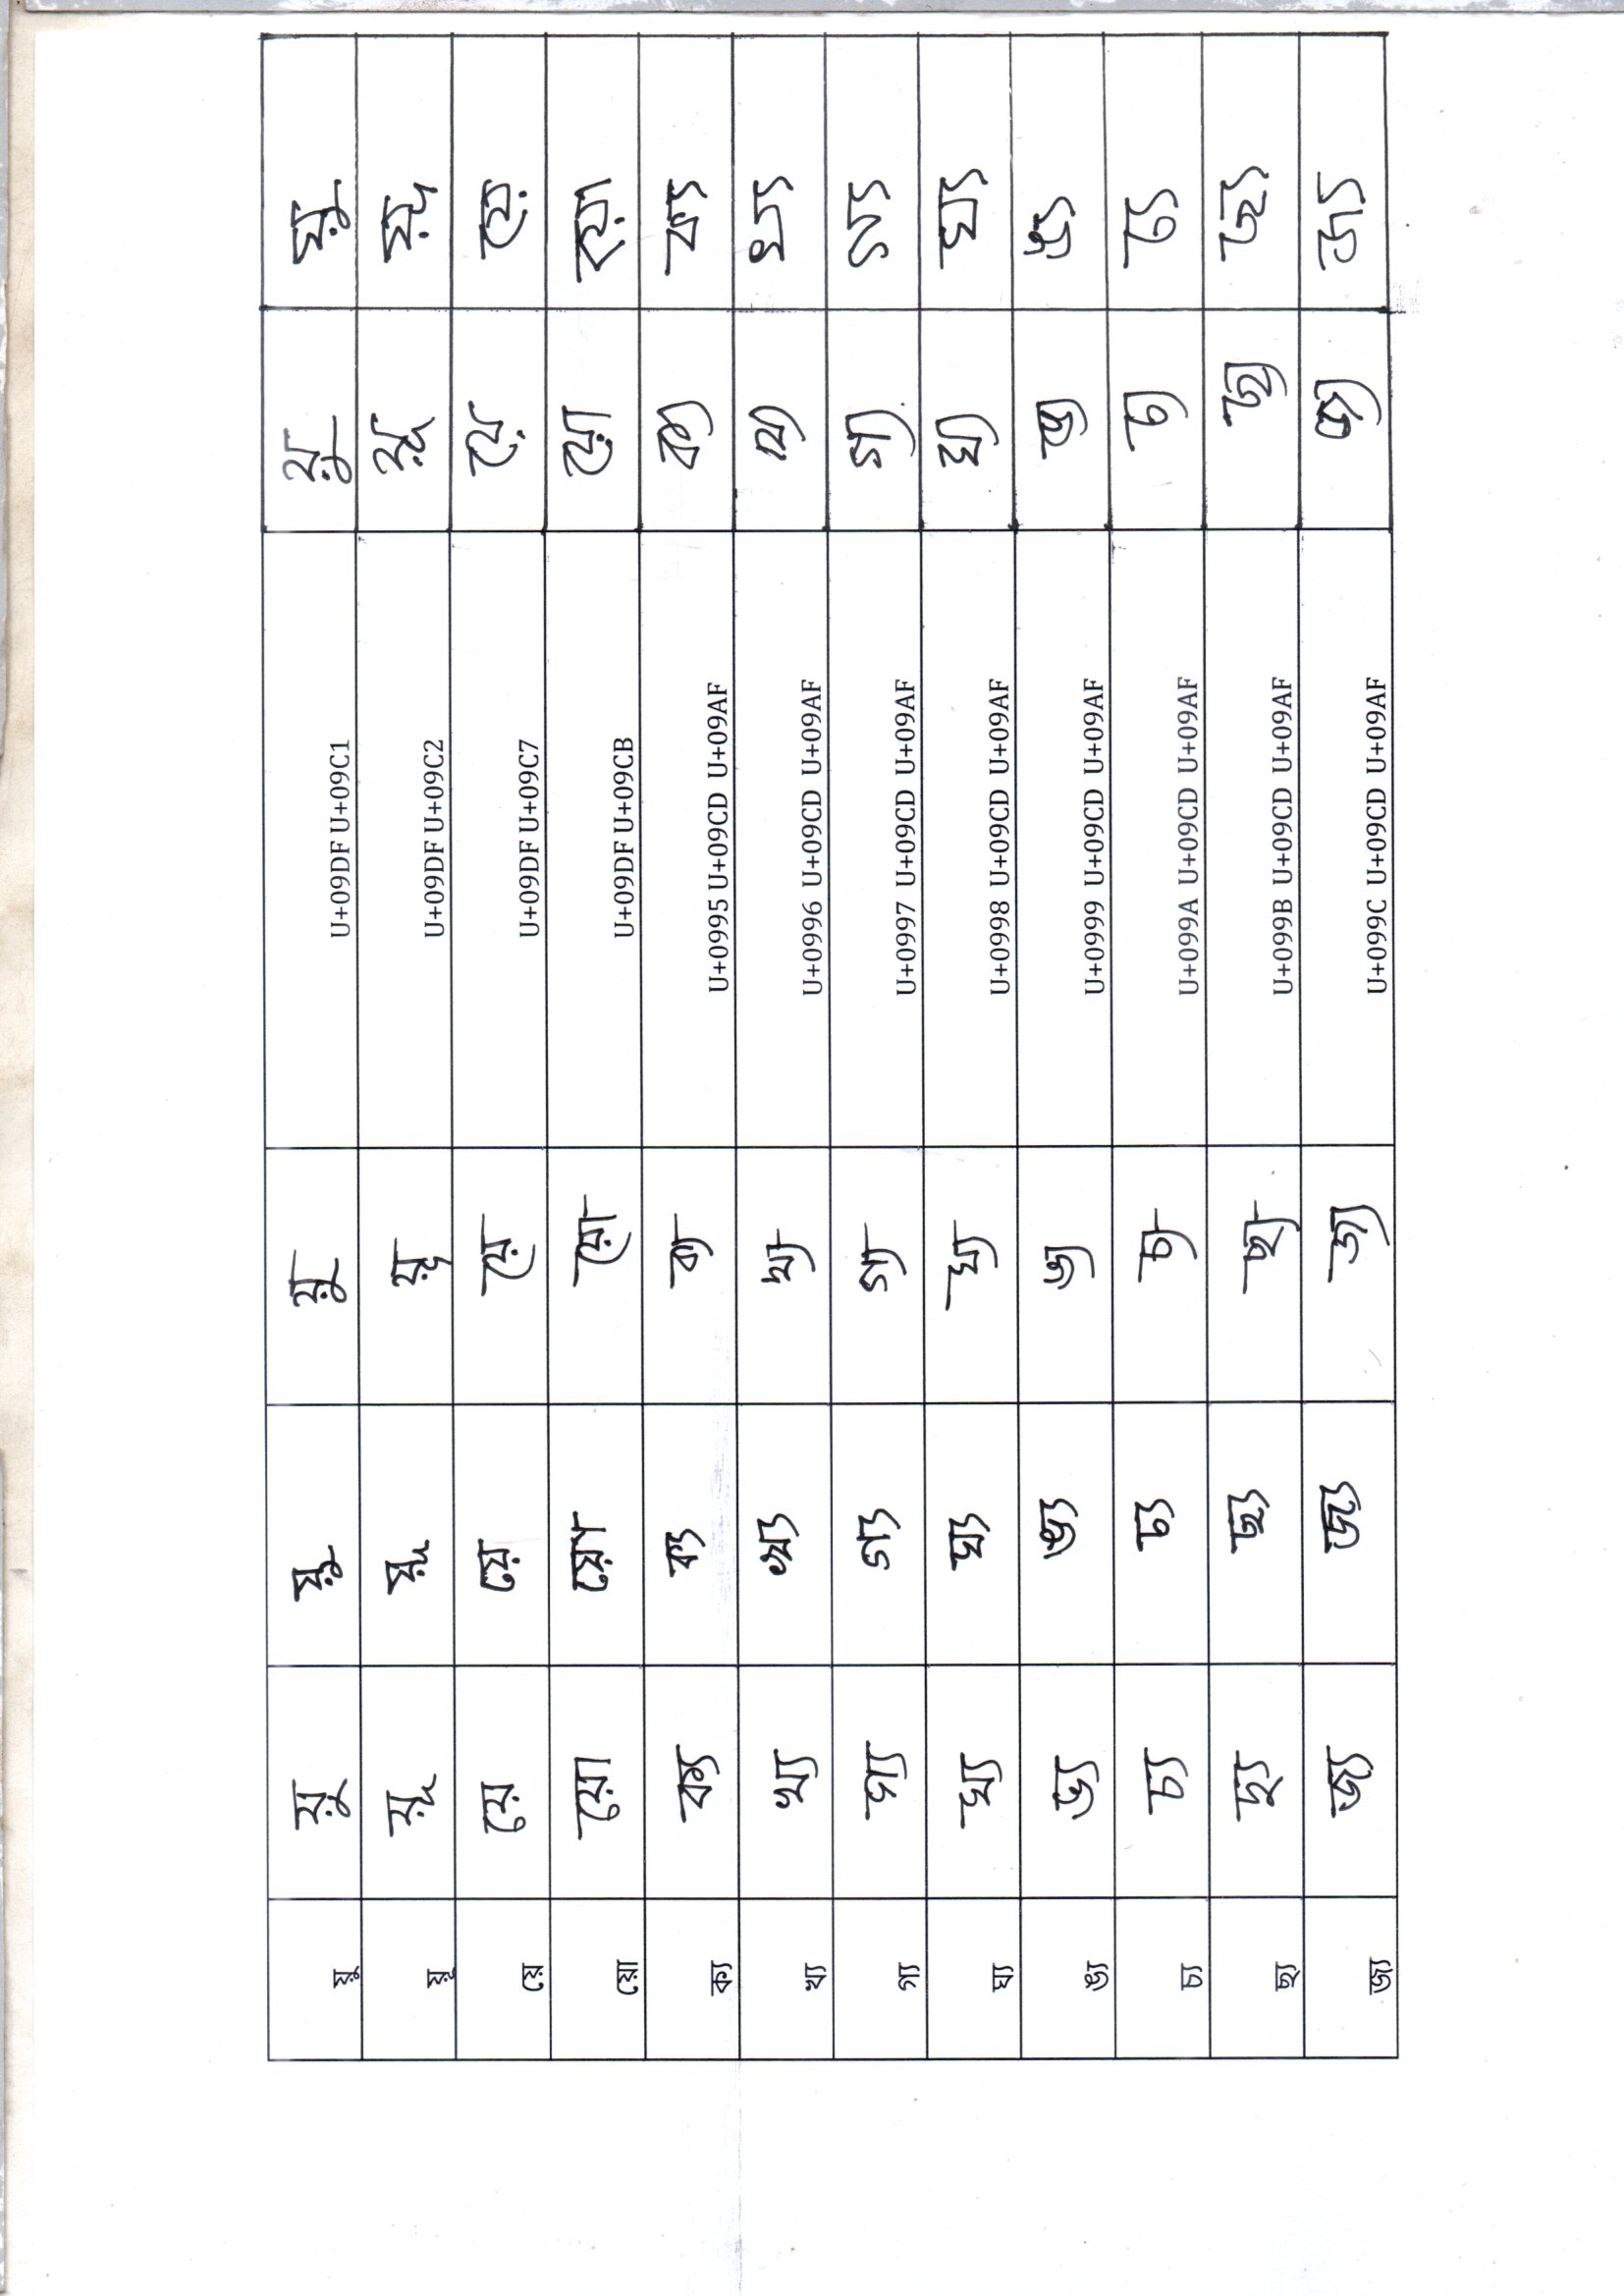 য়ু য়ু য়ু য়ু U+09DF U+09C1 য়ু য়ু
য়ূ য়ূ য়ূ য়ূ U+09DF U+09C2 য়ূ য়ূ
য়ে য়ে য়ে য়ে U+09DF U+09C7 য়ে য়ে
য়ো য়ো য়ো য়ো U+09DF U+09CB য়ো য়ো
ক্য ক্য ক্য ক্য U+0995 U+09CD U+09AF ক্য ক্য
খ্য খ্য খ্য খ্য U+0996 U+09CD U+09AF খ্য খ্য
গ্য গ্য গ্য গ্য U+0997 U+09CD U+09AF গ্য গ্য
ঘ্য ঘ্য ঘ্য ঘ্য U+0998 U+09CD U+09AF ঘ্য ঘ্য
ঙ্য ঙ্য ঙ্য ঙ্য U+0999 U+09CD U+09AF ঙ্য ঙ্য
চ্য চ্য চ্য চ্য U+099A U+09CD U+09AF চ্য চ্য
ছ্য ছ্য ছ্য ছ্য U+099B U+09CD U+09AF ছ্য ছ্য
জ্য জ্য জ্য জ্য U+099C U+09CD U+09AF জ্য জ্য